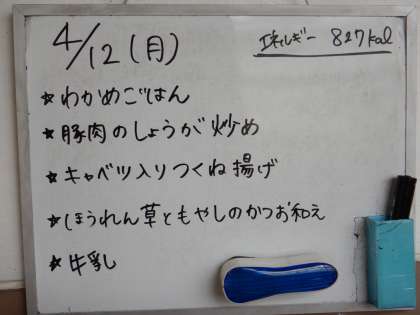 4/12(月)
エネルギー 827kcal
★わかめごはん
★豚肉のしょうが炒め
★キャベツ入りつくね揚げ
★ほうれん草ともやしのかつお和え
★牛乳